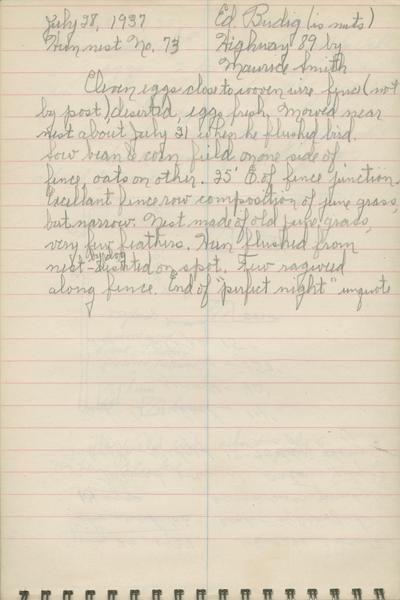 July 28, 1937 Ed. Budig (is nuts)
Hun nest No. 73 Highway 89 by
Maurice Smith
Eleven eggs close to woven wire fence (not
by post) deserted, eggs fresh. Mowed near
nest about July 21 when he flushed bird.
Soy bean & corn field on one side of
fence, oats on other. 25' E. of fence junction.
Excellant fence row composition of june grass,
but narrow. Nest made of old june grass,
very few feathers. Hun flushed from
nest by dog - deserted on spot. Few ragweed
along fence. End of "perfect night" unquote